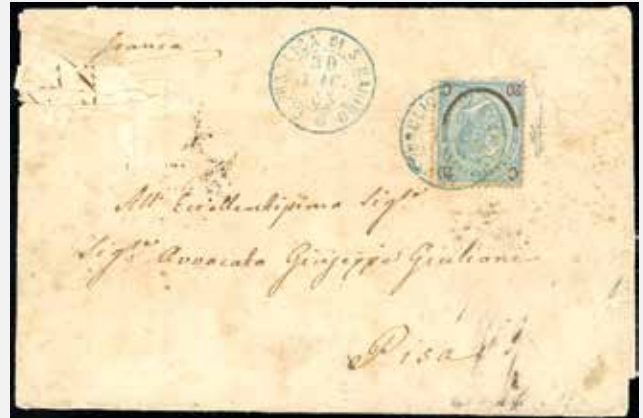 franca
REPUBBLICA DI S. MARINO
30
C 20
C 20
All' Eccellentissimo Sigr
Sigr Avvocato Giuseppe Giulioni
Pisa